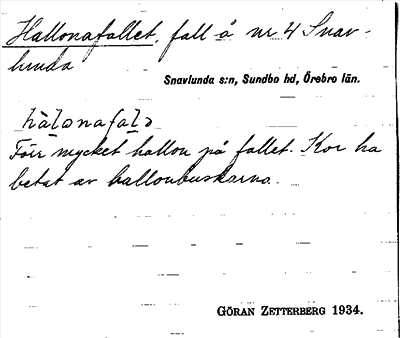 Hallonafallet, fall å nr 4 Snav-
lunda
Snavlunda s:n, Sundbo hd, Örebro län.
hàlonafalə
Förr mycket hallon på fallet. Kor ha
betat av hallonbuskarna.
GÖRAN ZETTERBERG 1934.